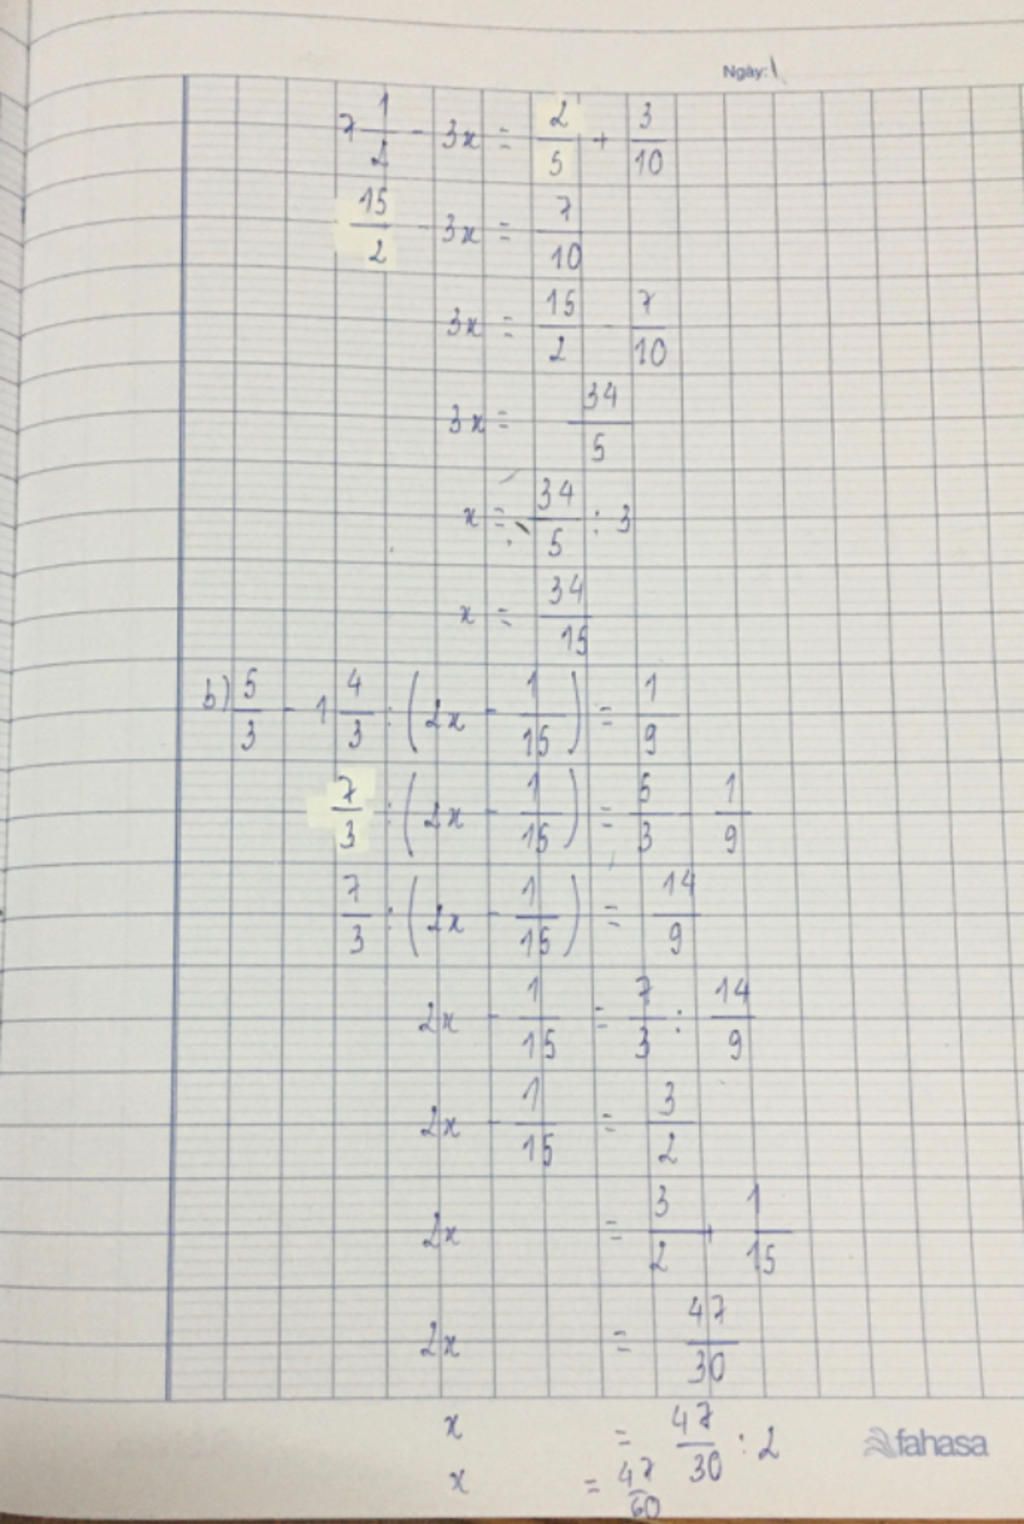 Ngày:
7 1/2 - 3x = 2/5 + 3/10
15/2 - 3x = 7/10
3x = 15/2 - 7/10
3x = 34/5
x = 34/5 : 3
x = 34/15
b) 5/3 - 1 4/3 : (2x - 1/15) = 1/9
7/3 : (2x - 1/15) = 5/3 - 1/9
7/3 : (2x - 1/15) = 14/9
2x - 1/15 = 7/3 : 14/9
2x - 1/15 = 3/2
2x = 3/2 + 1/15
2x = 47/30
x = 47/30 : 2
x = 47/60
fahasa